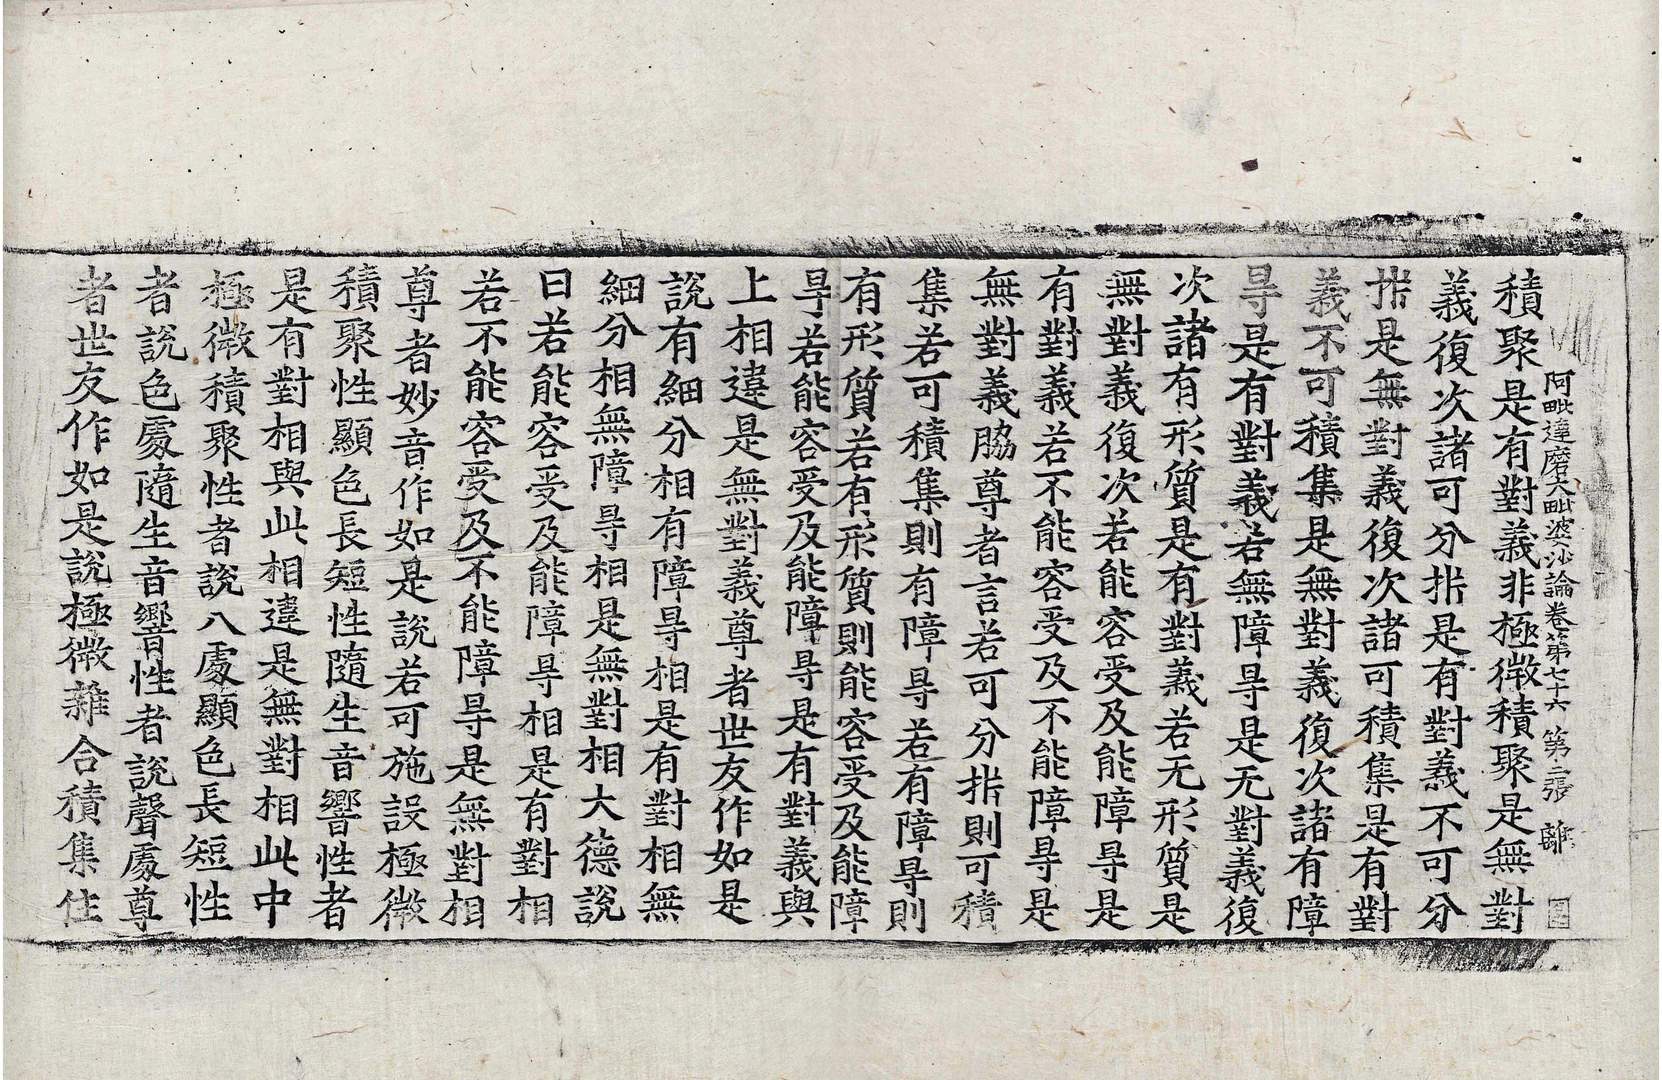 阿毗達磨大毗婆沙論卷第七十六　第二張　離
積聚是有對義非極微積聚是無對
義復次諸可分㧗是有對義不可分
㧗是無對義復次諸可積集是有對
義不可積集是無對義復次諸有障
㝵是有對義若無障㝵是无對義復
次諸有形質是有對義若无形質是
無對義復次若能容受及能障㝵是
有對義若不能容受及不能障㝵是
無對義脇尊者言若可分㧗則可積
集若可積集則有障㝵若有障㝵則
有形質若有形質則能容受及能障
㝵若能容受及能障㝵是有對義與
上相違是無對義尊者世友作如是
說有細分相有障㝵相是有對相無
細分相無障㝵相是無對相大德說
曰若能容受及能障㝵相是有對相
若不能容受及不能障㝵是無對相
尊者妙音作如是說若可施設極微
積聚性顯色長短性隨生音響性者
是有對相與此相違是無對相此中
極微積聚性者說八處顯色長短性
者說色處隨生音響性者說聲處尊
者世友作如是說極微雜合積集住